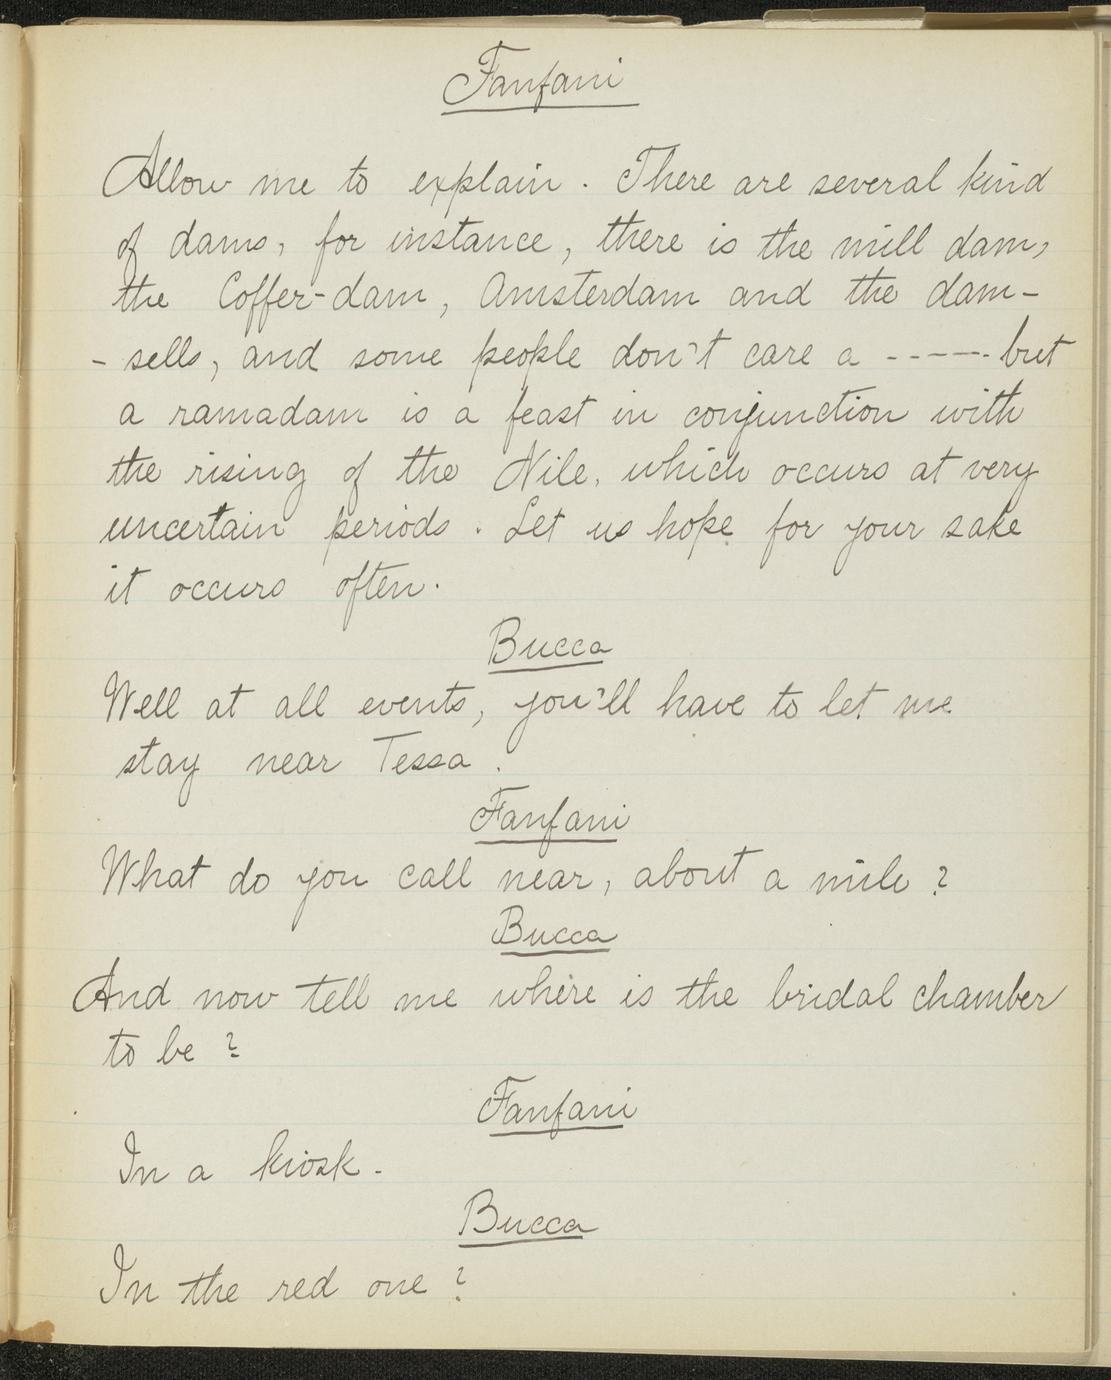 Fanfani
Allow me to explain. There are several kind
of dams, for instance, there is the mill dam,
the Coffer-dam, Amsterdam and the dam-
- sells, and some people don't care a ----- but
a ramadam is a feast in conjunction with
the rising of the Nile, which occurs at very
uncertain periods. Let us hope for your sake
it occurs often.
Bucca
Well at all events, you'll have to let me
stay near Tessa.
Fanfani
What do you call near, about a mile?
Bucca
And now tell me where is the bridal chamber
to be?
Fanfani
In a kiosk.
Bucca
In the red one?